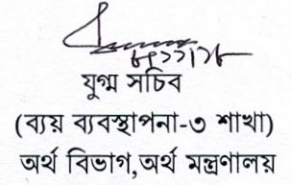 যুগ্ম সচিব
(ব্যয় ব্যবস্থাপনা-৩ শাখা)
অর্থ বিভাগ,অর্থ মন্ত্রণালয়